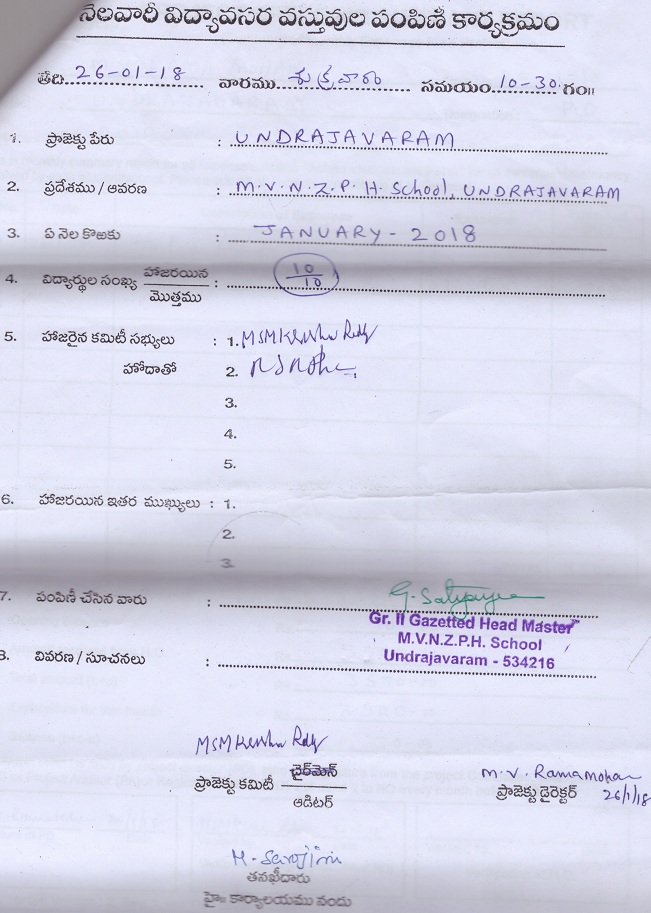 నెలవారీ విద్యావసర వస్తువుల పంపిణీ కార్యక్రమం
తేది. 26-01-18 వారము. శుక్రవారం సమయం. 10-30. గం॥
1. ప్రాజెక్టు పేరు : UNDRAJAVARAM
2. ప్రదేశము / ఆవరణ : M.V.N.Z.P.H. School, UNDRAJAVARAM
3. ఏ నెల కొఱకు : JANUARY - 2018
4. విద్యార్థుల సంఖ్య హాజరయిన : 10
మొత్తము 10
5. హాజరైన కమిటీ సభ్యులు : 1. MSMKeshu Reddy
హోదాతో 2.
3.
4.
5.
6. హాజరయిన ఇతర ముఖ్యులు : 1.
2.
3.
7. పంపిణీ చేసిన వారు :
Gr. II Gazetted Head Master
M.V.N.Z.P.H. School
Undrajavaram - 534216
8. వివరణ / సూచనలు :
ప్రాజెక్టు కమిటీ చైర్‌మెన్
ఆడిటర్
M.V. Ramamohan
ప్రాజెక్టు డైరెక్టర్ 26/1/18
M. Sarojini
తనఖీదారు
హై॥ కార్యాలయము నందు